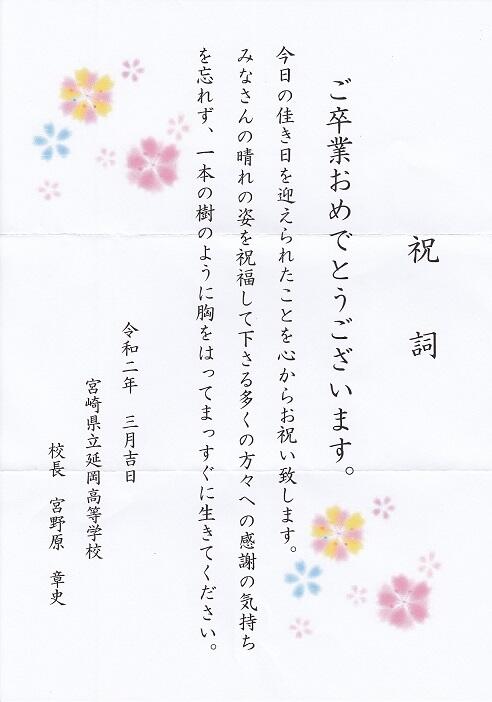 祝詞
ご卒業おめでとうございます。
今日の佳き日を迎えられたことを心からお祝い致します。
みなさんの晴れの姿を祝福して下さる多くの方々への感謝の気持ち
を忘れず、一本の樹のように胸をはってまっすぐに生きてください。
令和二年　三月吉日
宮崎県立延岡高等学校
校長　宮野原　章史